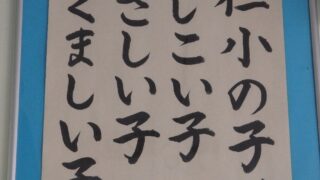 仁小の子
しこい子
さしい子
くましい子